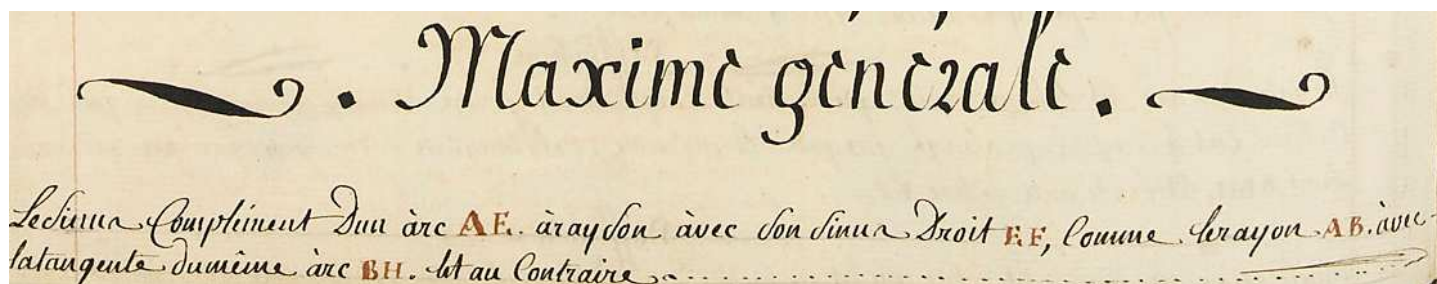 . Maxime générale .
Le Sinus Complément Dun àrc AE. àrayson àvec Son Sinus Droit EF, Comme le rayon AB. àvec
la tangente du même àrc BH. et au Contraire